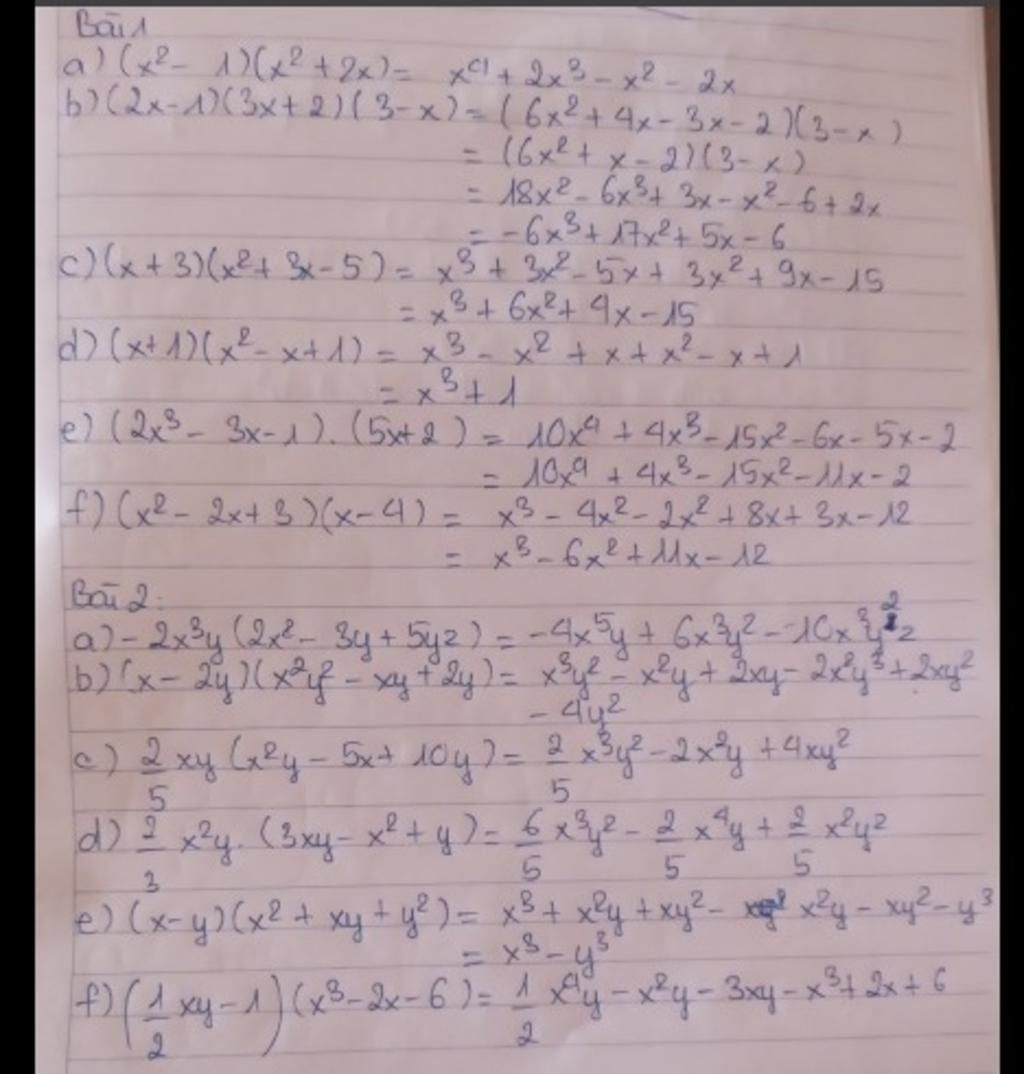 Bài 1
a) (x² - 1)(x² + 2x) = x⁴ + 2x³ - x² - 2x
b) (2x - 1)(3x + 2)(3 - x) = (6x² + 4x - 3x - 2)(3 - x)
= (6x² + x - 2)(3 - x)
= 18x² - 6x³ + 3x - x² - 6 + 2x
= -6x³ + 17x² + 5x - 6
c) (x + 3)(x² + 3x - 5) = x³ + 3x² - 5x + 3x² + 9x - 15
= x³ + 6x² + 4x - 15
d) (x + 1)(x² - x + 1) = x³ - x² + x + x² - x + 1
= x³ + 1
e) (2x³ - 3x - 1).(5x + 2) = 10x⁴ + 4x³ - 15x² - 6x - 5x - 2
= 10x⁴ + 4x³ - 15x² - 11x - 2
f) (x² - 2x + 3)(x - 4) = x³ - 4x² - 2x² + 8x + 3x - 12
= x³ - 6x² + 11x - 12
Bài 2:
a) - 2x³y (2x² - 3y + 5yz) = -4x⁵y + 6x³y² - 10x³y²z
b) (x - 2y)(x²y² - xy + 2y) = x³y² - x²y + 2xy - 2x²y³ + 2xy²
- 4y²
c) 2/5 xy (x²y - 5x + 10y) = 2/5 x³y² - 2x²y + 4xy²
d) 2/3 x²y.(3xy - x² + y) = 6/5 x³y² - 2/5 x⁴y + 2/5 x²y²
e) (x - y)(x² + xy + y²) = x³ + x²y + xy² - x²y - xy² - y³
= x³ - y³
f) (1/2 xy - 1)(x³ - 2x - 6) = 1/2 x⁴y - x²y - 3xy - x³ + 2x + 6